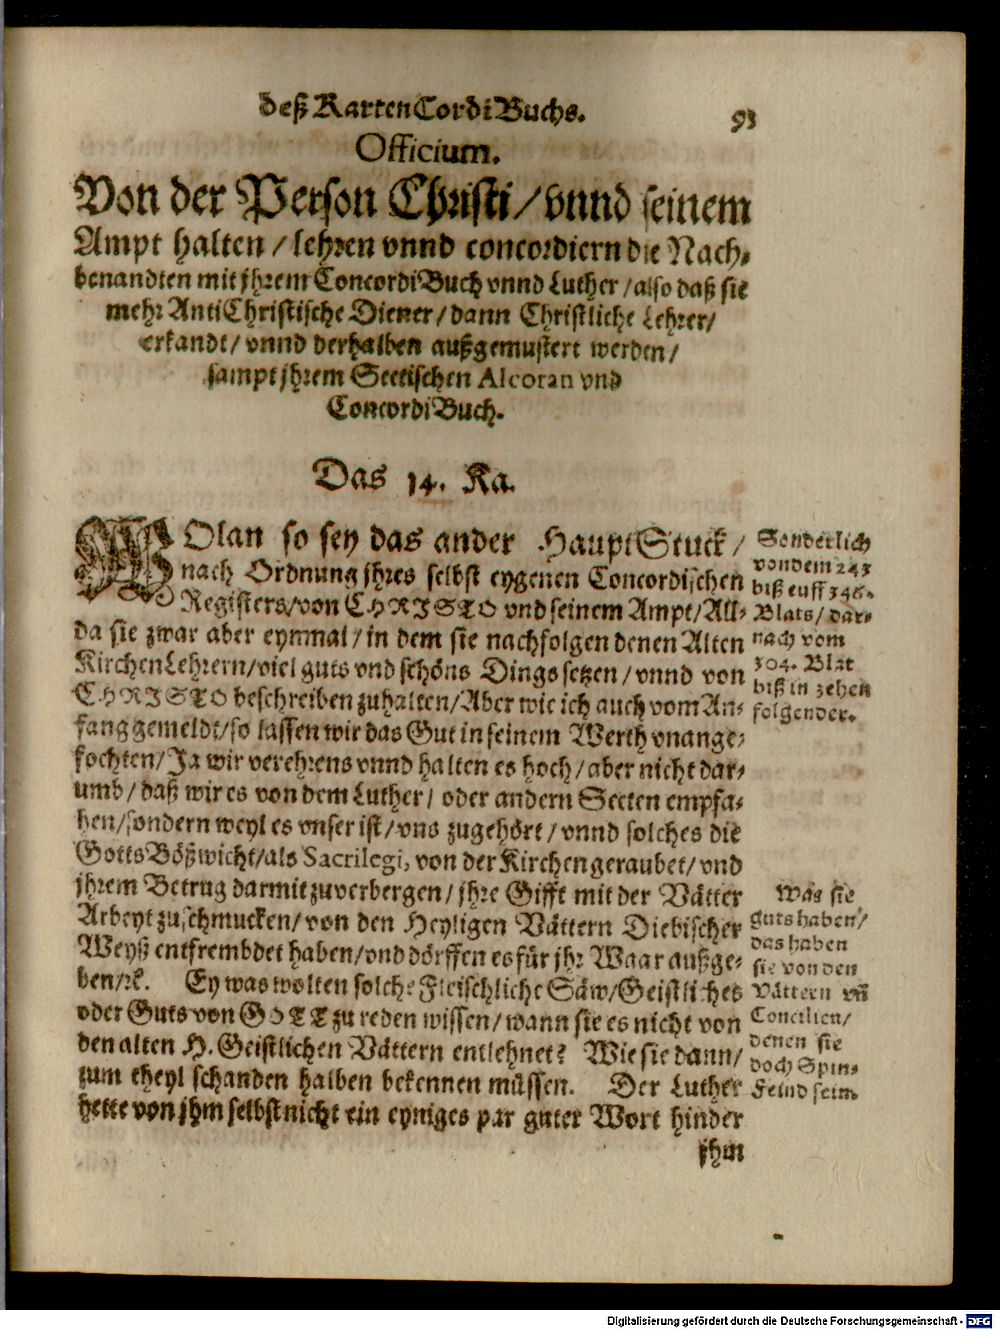 deß KartenCordiBuchs.
93
Officium.
Von der Person Christi/vnnd seinem
Ampt halten/lehren vnnd concordiern die Nach-
benandten mit jhrem ConcordiBuch vnnd Luther/also daß sie
mehr AntiChristische Diener/dann Christliche Lehrer/
erkandt/vnnd derhalben außgemustert werden/
sampt jhrem Sectischen Alcoran vnd
ConcordiBuch.
Das 14. Ka.
WOlan so sey das ander HauptStuck/
nach Ordnung jhres selbst eygenen Concordischen
Registers/von CHRISTO vnd seinem Ampt/All-
da sie zwar aber eynmal/in dem sie nachfolgen denen Alten
KirchenLehrern/viel guts vnd schöns Dings setzen/vnnd von
CHRISTO beschreiben zuhalten/Aber wie ich auch vom An-
fang gemeldt/so lassen wir das Gut in seinem Werth vnange-
fochten/Ja wir verehrens vnnd halten es hoch/aber nicht dar-
umb/daß wir es von dem Luther/oder andern Secten empfa-
hen/sondern weyl es vnser ist/vns zugehört/vnnd solches die
GottsBößwicht/als Sacrilegi, von der Kirchen geraubet/vnd
jhrem Betrug darmit zuverbergen/jhre Gifft mit der Vätter
Arbeyt zuschmucken/von den Heyligen Vättern Diebischer
Weyß entfrembdet haben/vnd dörffen es für jhr Waar außge-
ben/ꝛc. Ey was wolten solche Fleischliche Säw/Geistliches
oder Guts von GOTT zu reden wissen/wann sie es nicht von
den alten H. Geistlichen Vättern entlehnet? Wie sie dann/
zum theyl schanden halben bekennen müssen. Der Luther
hette von jhm selbst nicht ein eyniges par guter Wort hinder
jhm
Sonderlich
von dem 243
biß auff 346.
Blats/dar-
nach vom
304. Blat
biß in zehen
folgender.
Was sie
guts haben/
das haben
sie von den
Vättern vñ
Concilien/
denen sie
doch Spin-
Feind sein.
Digitalisierung gefördert durch die Deutsche Forschungsgemeinschaft - DFG